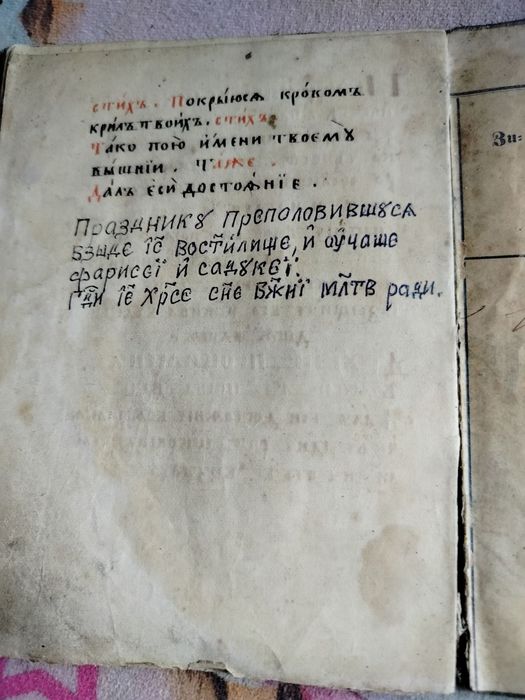 стиⷯ҇ъ. Покрыюсѧ кро́комъ
крилъ твои́хъ. сти́хъ.
Та́ко пою и҆́мени твоемꙋ̀
вы́шнїи. Та́же.
Далъ є҆сѝ досто́ѧнїе.
Празднику Преполовившуся
взыде і҃с востилище, и҆ ѹ҆чаше
фарисеї и҆ садукеї.
Гд҃и іс҃е хрс҃є сн҃е бж҃їи мл҃тв ради.
Зи: